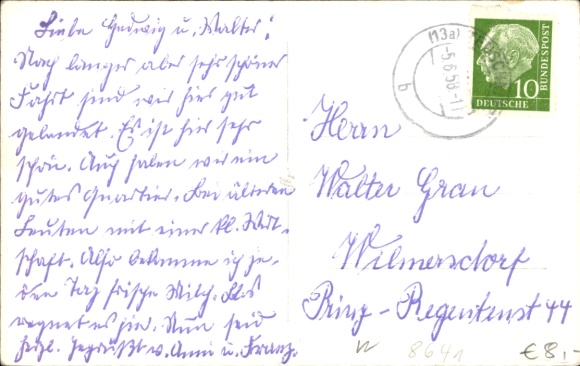 Liebe Hedwig u. Walter!
Nach langer aber sehr schöner
Fahrt sind wir hier gut
gelandet. Es ist hier sehr
schön. Auch haben wir ein
gutes Quartier. Bei älteren
Leuten mit einer kl. Wirt-
schaft. Also bekomme ich je-
den Tag frische Milch.
regnet es hier. Nun seid
herzl. gegrüßt v. Anni u. Franz.
(13a)
-5.6.58-11
b
10
DEUTSCHE
BUNDESPOST
Herrn
Walter Grau
Wilmersdorf
Prinz-Regentenst 44
8641
€8,-